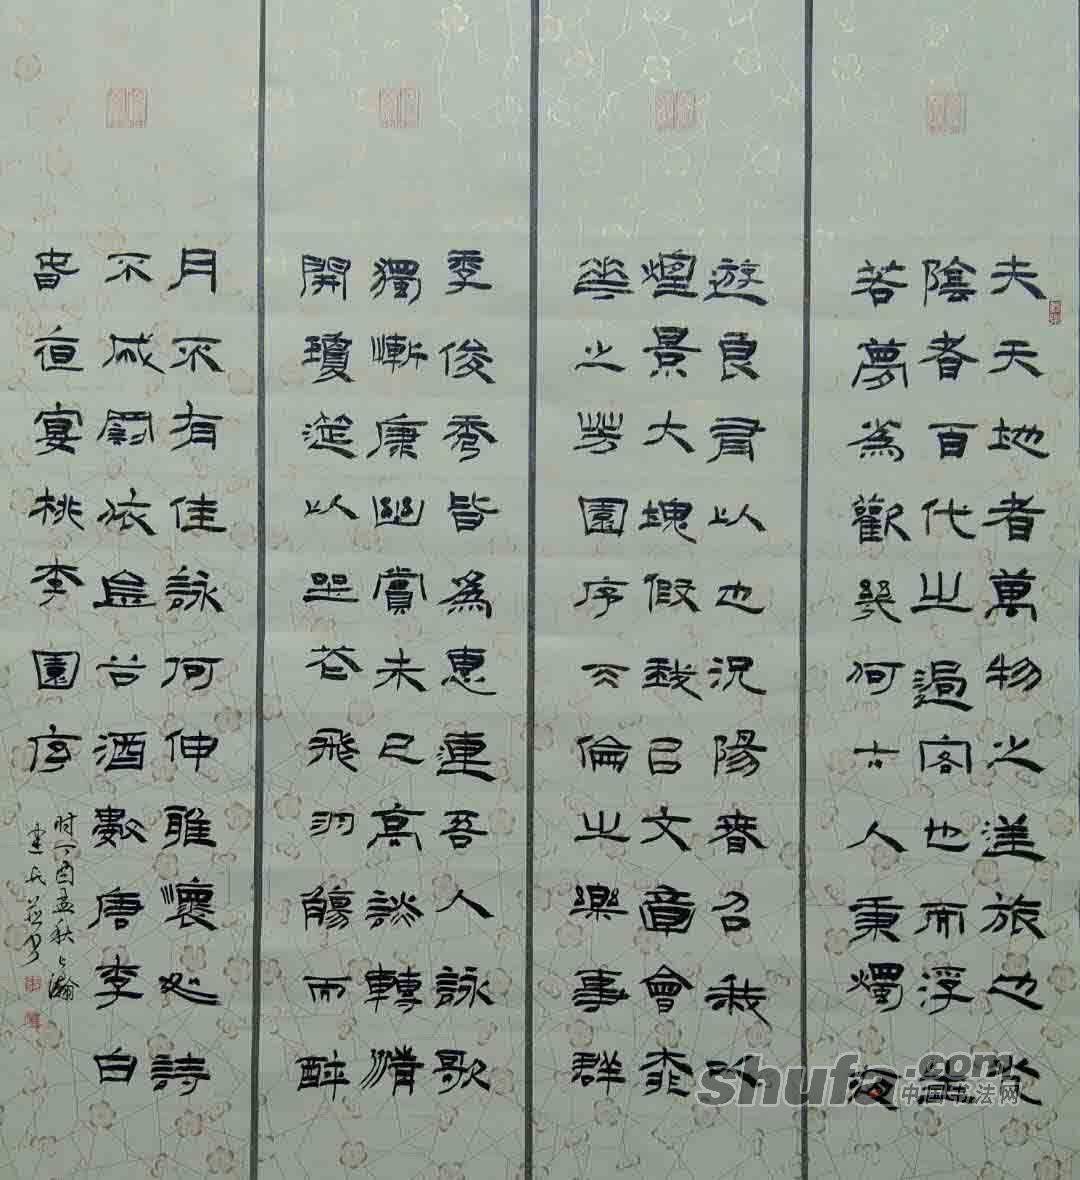 夫天地者萬物之逆旅也光
陰者百代之過客也而浮生
若夢為歡幾何古人秉燭夜
遊良有以也況陽春召我以
煙景大塊假我以文章會桃
華之芳園序天倫之樂事群
季俊秀皆為惠連吾人詠歌
獨慚康幽賞未已高談轉清
開瓊筵以坐花飛羽觴而醉
月不有佳詠何伸雅懷如詩
不成罰依金谷酒數唐李白
春夜宴桃李園序
时丁酉孟秋
書
shufa.com
中国书法网